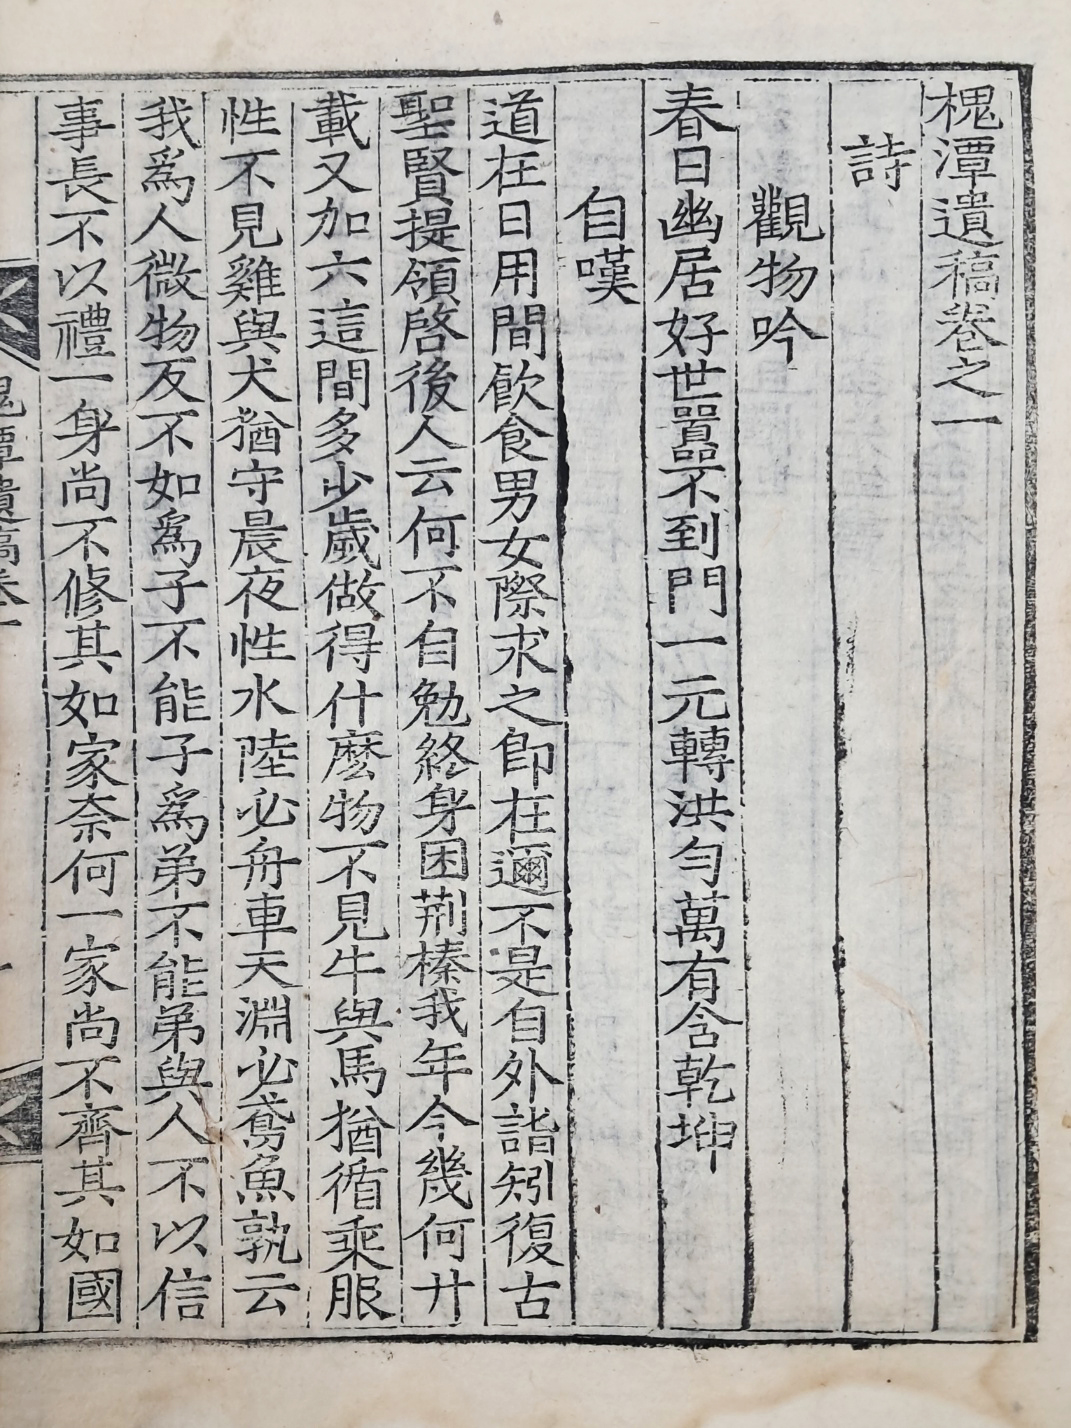 槐潭遺稿卷之一
詩
觀物吟
春日幽居好世囂不到門一元轉洪勻萬有含乾坤
自嘆
道在日用間飮食男女際求之卽在邇不是自外詣矧復古
聖賢提領啓後人云何不自勉終身困荊榛我年今幾何廿
載又加六這間多少歲做得什麽物不見牛與馬猶循乘服
性不見雞與犬猶守晨夜性水陸必舟車天淵必鳶魚孰云
我爲人微物反不如爲子不能子爲弟不能弟與人不以信
事長不以禮一身尚不修其如家奈何一家尚不齊其如國
槐潭遺稿卷一